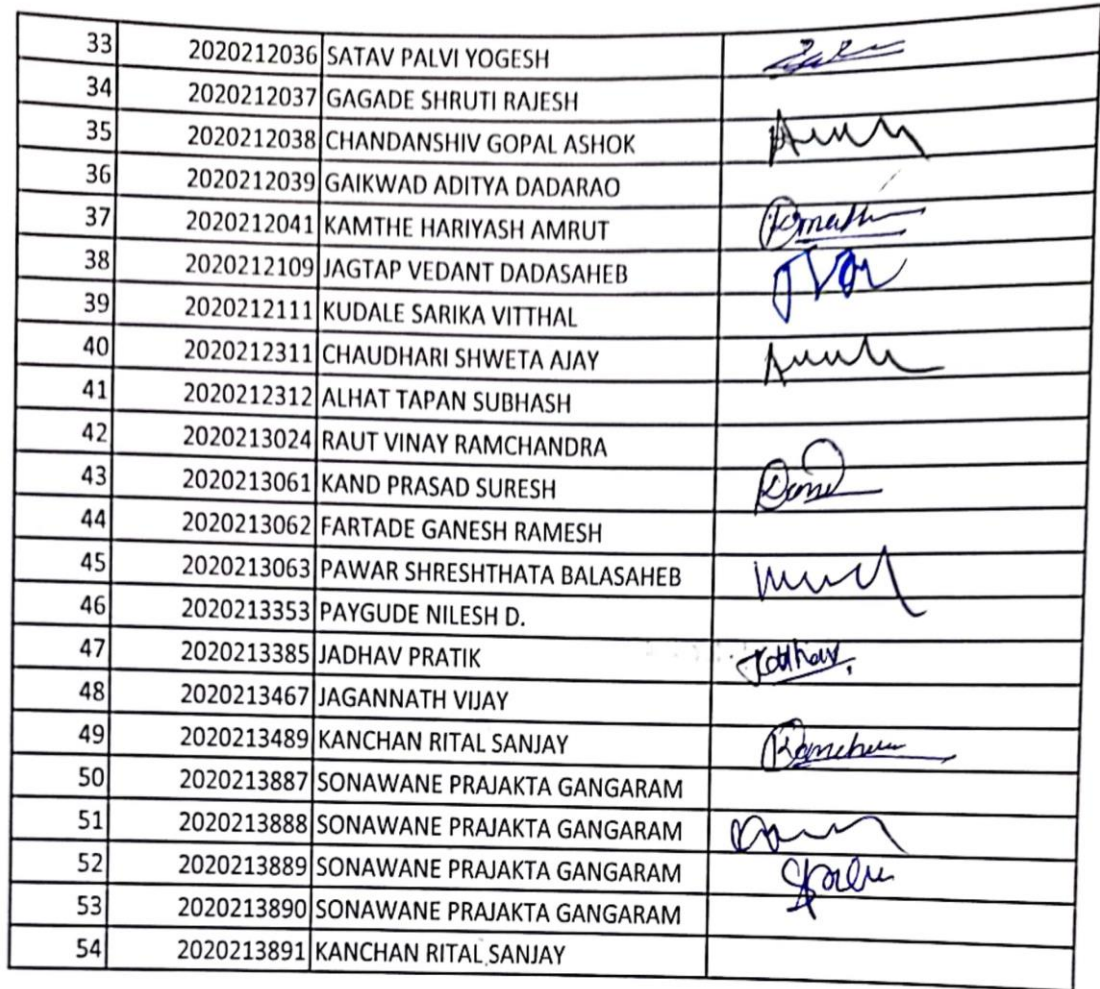 33 2020212036 SATAV PALVI YOGESH
34 2020212037 GAGADE SHRUTI RAJESH
35 2020212038 CHANDANSHIV GOPAL ASHOK
36 2020212039 GAIKWAD ADITYA DADARAO
37 2020212041 KAMTHE HARIYASH AMRUT
38 2020212109 JAGTAP VEDANT DADASAHEB
39 2020212111 KUDALE SARIKA VITTHAL
40 2020212311 CHAUDHARI SHWETA AJAY
41 2020212312 ALHAT TAPAN SUBHASH
42 2020213024 RAUT VINAY RAMCHANDRA
43 2020213061 KAND PRASAD SURESH
44 2020213062 FARTADE GANESH RAMESH
45 2020213063 PAWAR SHRESHTHATA BALASAHEB
46 2020213353 PAYGUDE NILESH D.
47 2020213385 JADHAV PRATIK
48 2020213467 JAGANNATH VIJAY
49 2020213489 KANCHAN RITAL SANJAY
50 2020213887 SONAWANE PRAJAKTA GANGARAM
51 2020213888 SONAWANE PRAJAKTA GANGARAM
52 2020213889 SONAWANE PRAJAKTA GANGARAM
53 2020213890 SONAWANE PRAJAKTA GANGARAM
54 2020213891 KANCHAN RITAL SANJAY